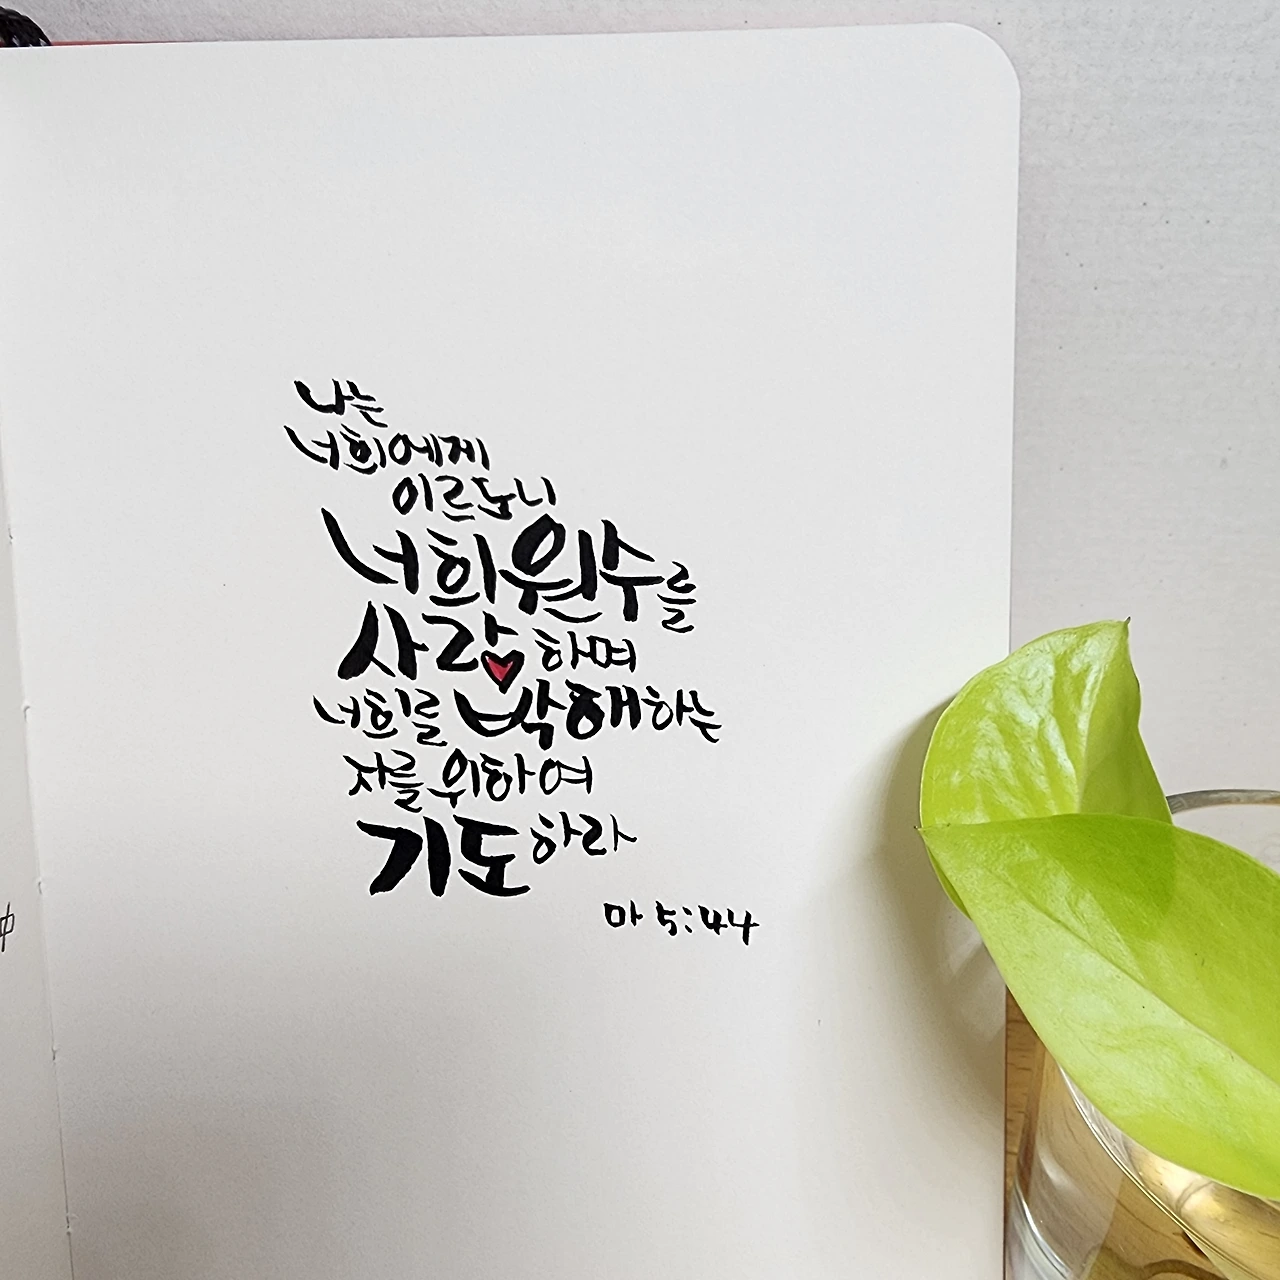 나는
너희에게
이르노니
너희 원수를
사랑하며
너희를 박해하는
자를 위하여
기도하라
마 5:44